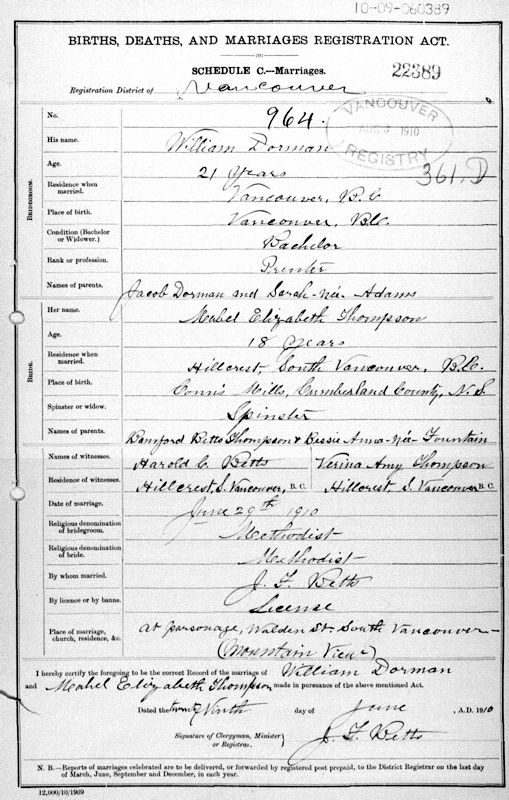 10-09-060389
BIRTHS, DEATHS, AND MARRIAGES REGISTRATION ACT.
SCHEDULE C.—Marriages.
22389
Registration District of Vancouver
No. 964.
VANCOUVER
AUG 3 1910
REGISTRY
361.D
BRIDEGROOM.
His name. William Dorman
Age. 21 Years
Residence when married. Vancouver, B.C
Place of birth. Vancouver, B.C.
Condition (Bachelor or Widower.) Bachelor
Rank or profession. Printer
Names of parents. Jacob Dorman and Sarah née Adams
BRIDE.
Her name. Mabel Elizabeth Thompson
Age. 18 Years
Residence when married. Hillcrest, South Vancouver, B.C.
Place of birth. Conn's Mills, Cumberland County, N.S
Spinster or widow. Spinster
Names of parents. Bamford Betts Thompson & Bessie Anna née Fountain
Names of witnesses. Harold C. Betts Verina Amy Thompson
Residence of witnesses. Hillcrest, S. Vancouver, B.C. Hillcrest, S. Vancouver B.C.
Date of marriage. June 29th 1910
Religious denomination of bridegroom. Methodist
Religious denomination of bride. Methodist
By whom married. J. F. Betts
By licence or by banns. License
Place of marriage, church, residence, &c. at parsonage, Walden St. South Vancouver—
(Mountain View)
I hereby certify the foregoing to be the correct Record of the marriage of William Dorman
and Mabel Elizabeth Thompson, made in pursuance of the above mentioned Act.
Dated the twenty Ninth day of June, A.D. 1910
Signature of Clergyman, Minister or Registrar. J. F. Betts
N. B.—Reports of marriages celebrated are to be delivered, or forwarded by registered post prepaid, to the District Registrar on the last day
of March, June, September and December, in each year.
12,000/10/1909